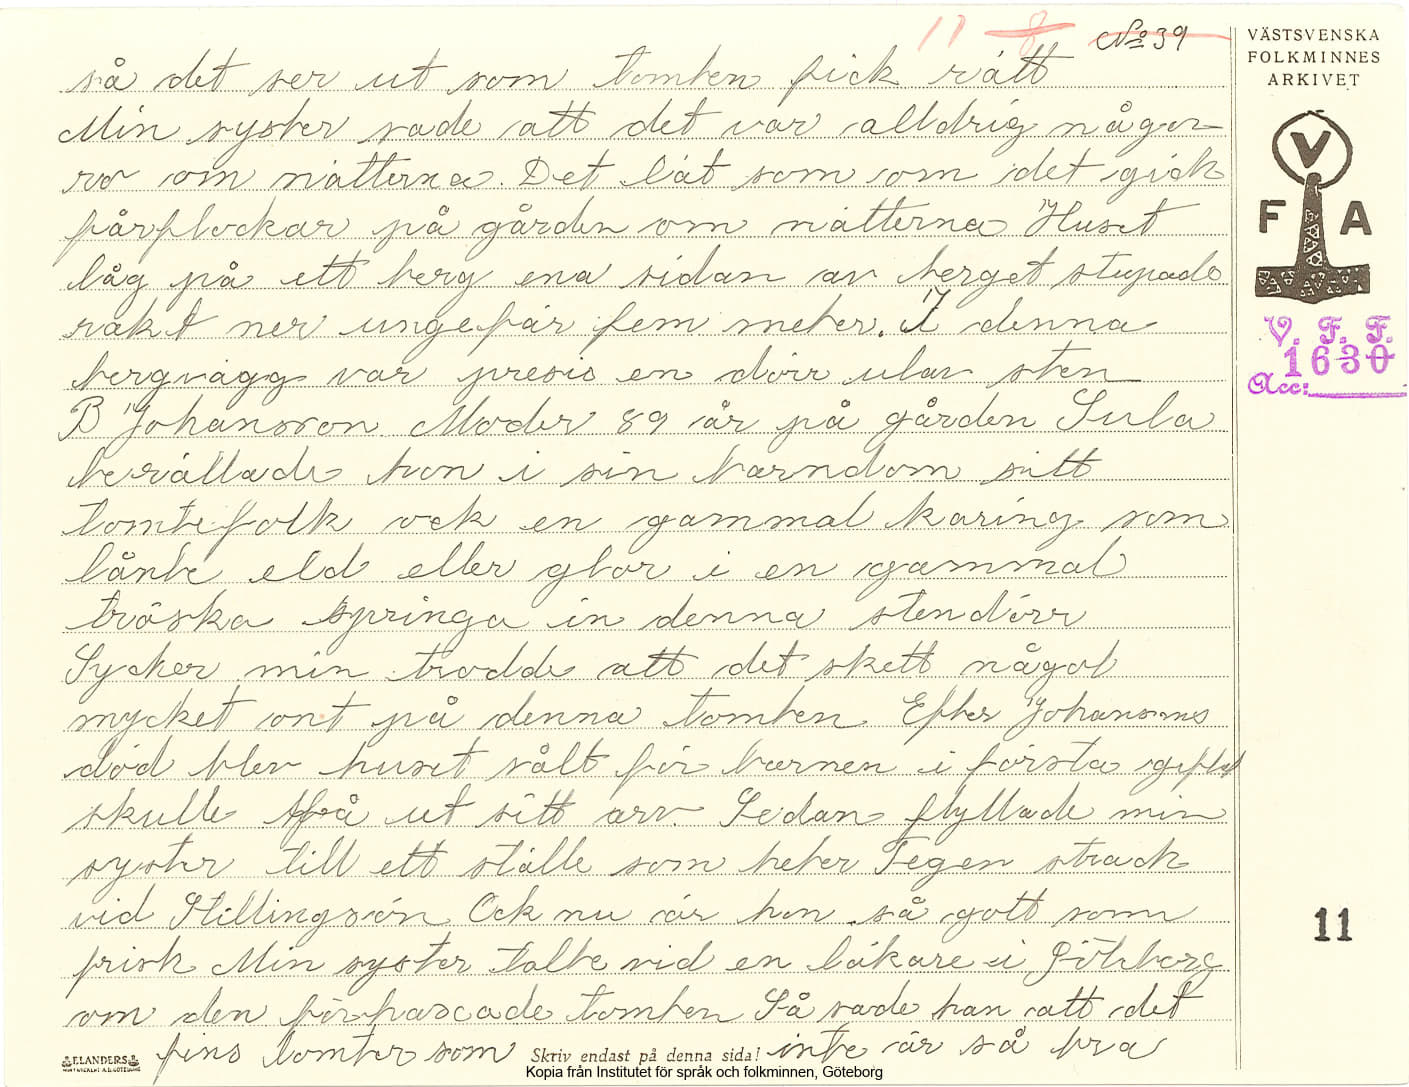 11 8 No 39
VÄSTSVENSKA
FOLKMINNES
ARKIVET
V
F A
V. F. F.
1630
Acc:
så det ser ut som tomten fick rätt
Min syster sade att det var alldrig någon
ro om nätterna. Det lät som om det gick
fårflockar på gården om nätterna Huset
låg på ett berg ena sidan av berget stupade
rakt ner ungefär fem meter. I denna
bergvägg var presis en dörr utav sten
B Johansson Moder 89 år på gården Sula
berättade hon i sin barndom sett
tomtefolk ock en gammal käring som
lånte eld eller glor i en gammal
träska springa in denna stendörr
Syster min trodde att det skett något
mycket ont på denna tomten Efter Johansons
död blev huset sålt för barnen i första giftet
skulle få ut sitt arv. Sedan flyttade min
syster till ett ställe som heter Tegen strack
vid Stillingsön Ock nu är hon så gott som
frisk Min syster talte vid en läkare i Göteborg
om den förhaxade tomten Så sade han att det
fins tomter som inte är så bra
11
F. LANDERS
Skriv endast på denna sida!
Kopia från Institutet för språk och folkminnen, Göteborg